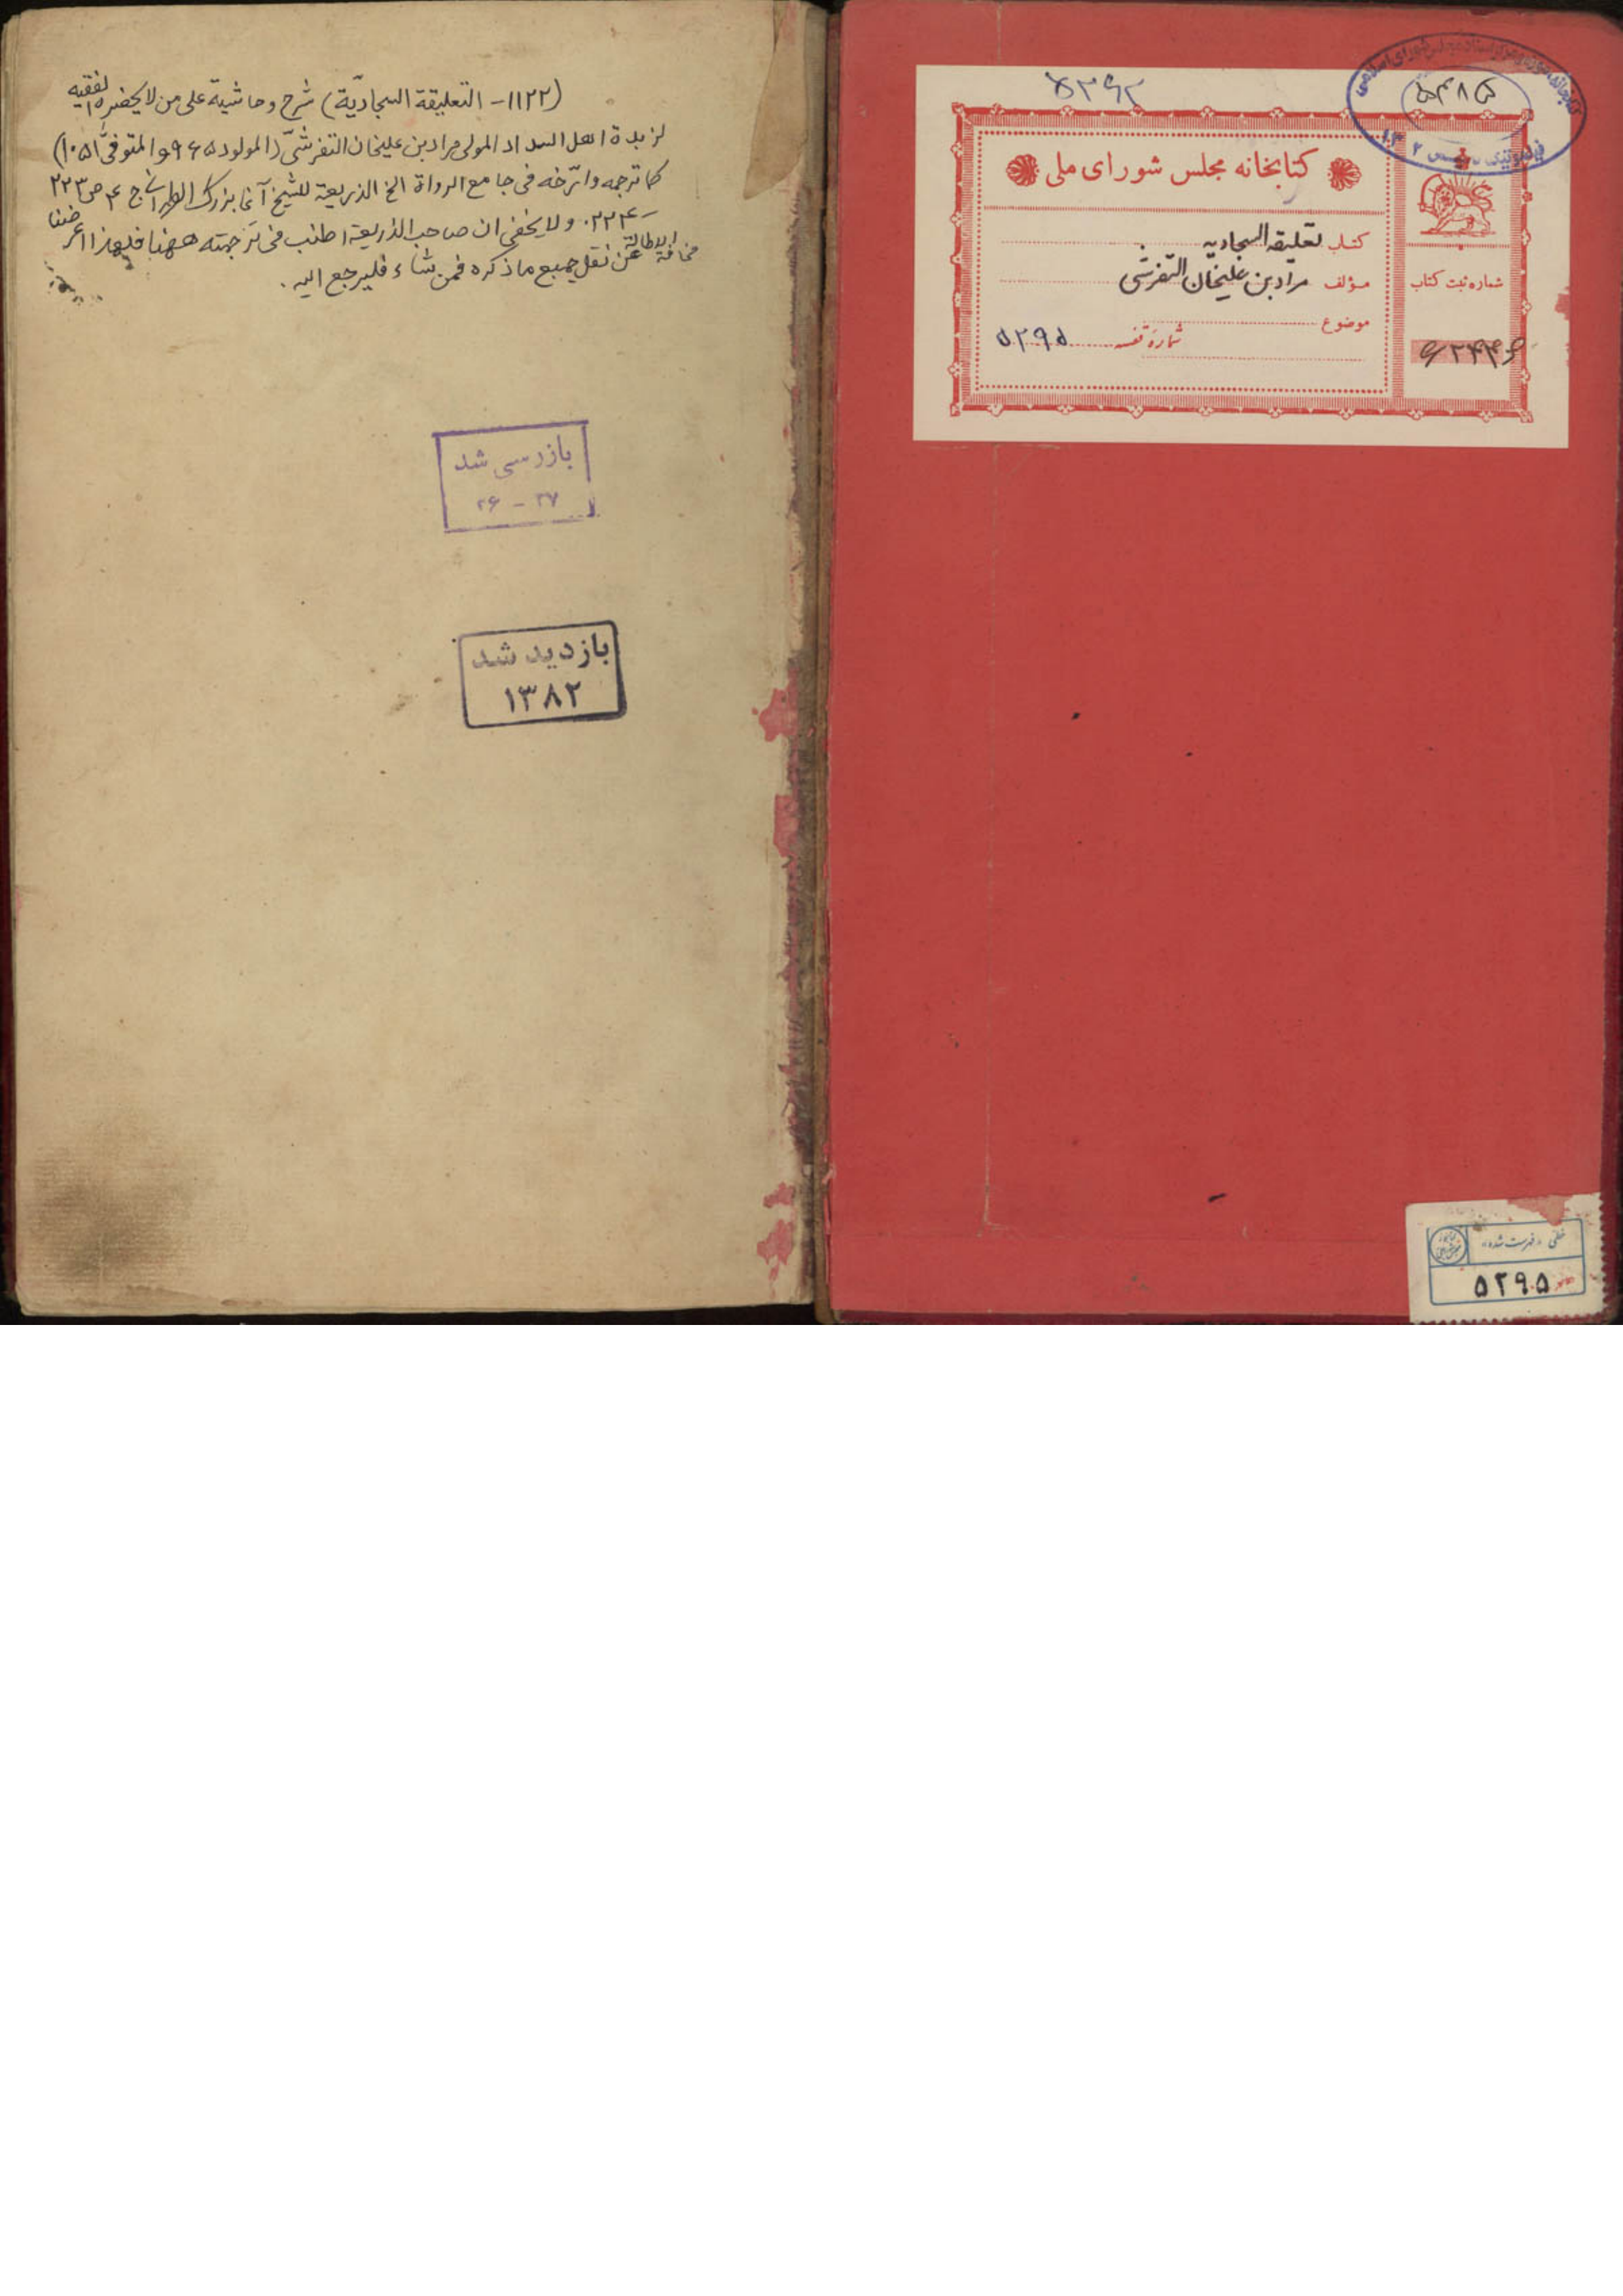 (١١٢٢- التعليقة السجاديّة) شرح وحاشية على من لا يحضره الفقيه
لزبدة اهل السداد المولى مراد بن عليخان التفرشىّ (المولود ٩٦٥ والمتوفىّ ١٠٥١)
كما ترجمه وارّخه فى جامع الرواة الخ الذريعة للشيخ آغا بزرك الطهرانى ج ٤ ص ٢٢٣
-٢٢٤. ولا يخفى ان صاحب الذريعة اطنب فى ترجمته ههنا فلهذا اعرضنا
عن نقل جميع ما ذكره مخافة الاطالة فمن شاء فليرجع اليه.
بازرسی شد
۲۶ - ۲۷
بازدید شد
۱۳۸۲
۵۴۸۵
کتابخانه مجلس شورای ملی
کتاب تعلیقه السجادیه
مؤلف مراد بن علیخان التفرشی
موضوع
شماره قفسه ۵۲۹۵
شماره ثبت کتاب
خطی «فهرست شده»
۵۲۹۵